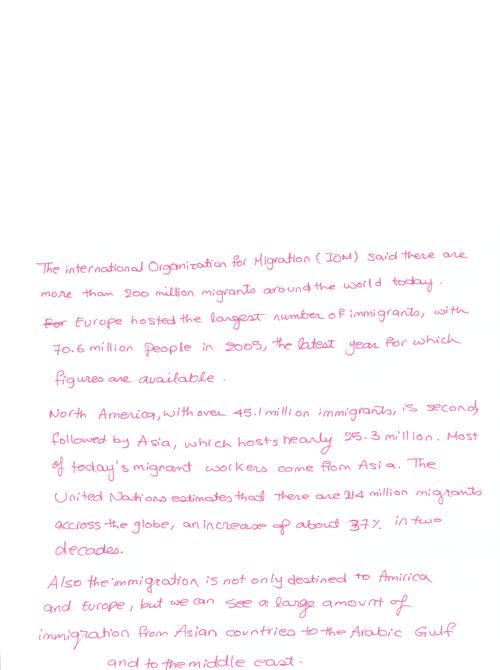 The international Organization for Migration (IOM) said there are
more than 200 million migrants around the world today.
For Europe hosted the largest number of immigrants, with
70.6 million people in 2005, the latest year for which
figures are available.
North America, with over 45.1 million immigrants, is second,
followed by Asia, which hosts nearly 25.3 million. Most
of today's migrant workers come from Asia. The
United Nations estimates that there are 214 million migrants
accross the globe, an increase of about 37% in two
decades.
Also the immigration is not only destined to Amirica
and Europe, but we can see a large amount of
immigration from Asian countries to the Arabic Gulf
and to the middle east.